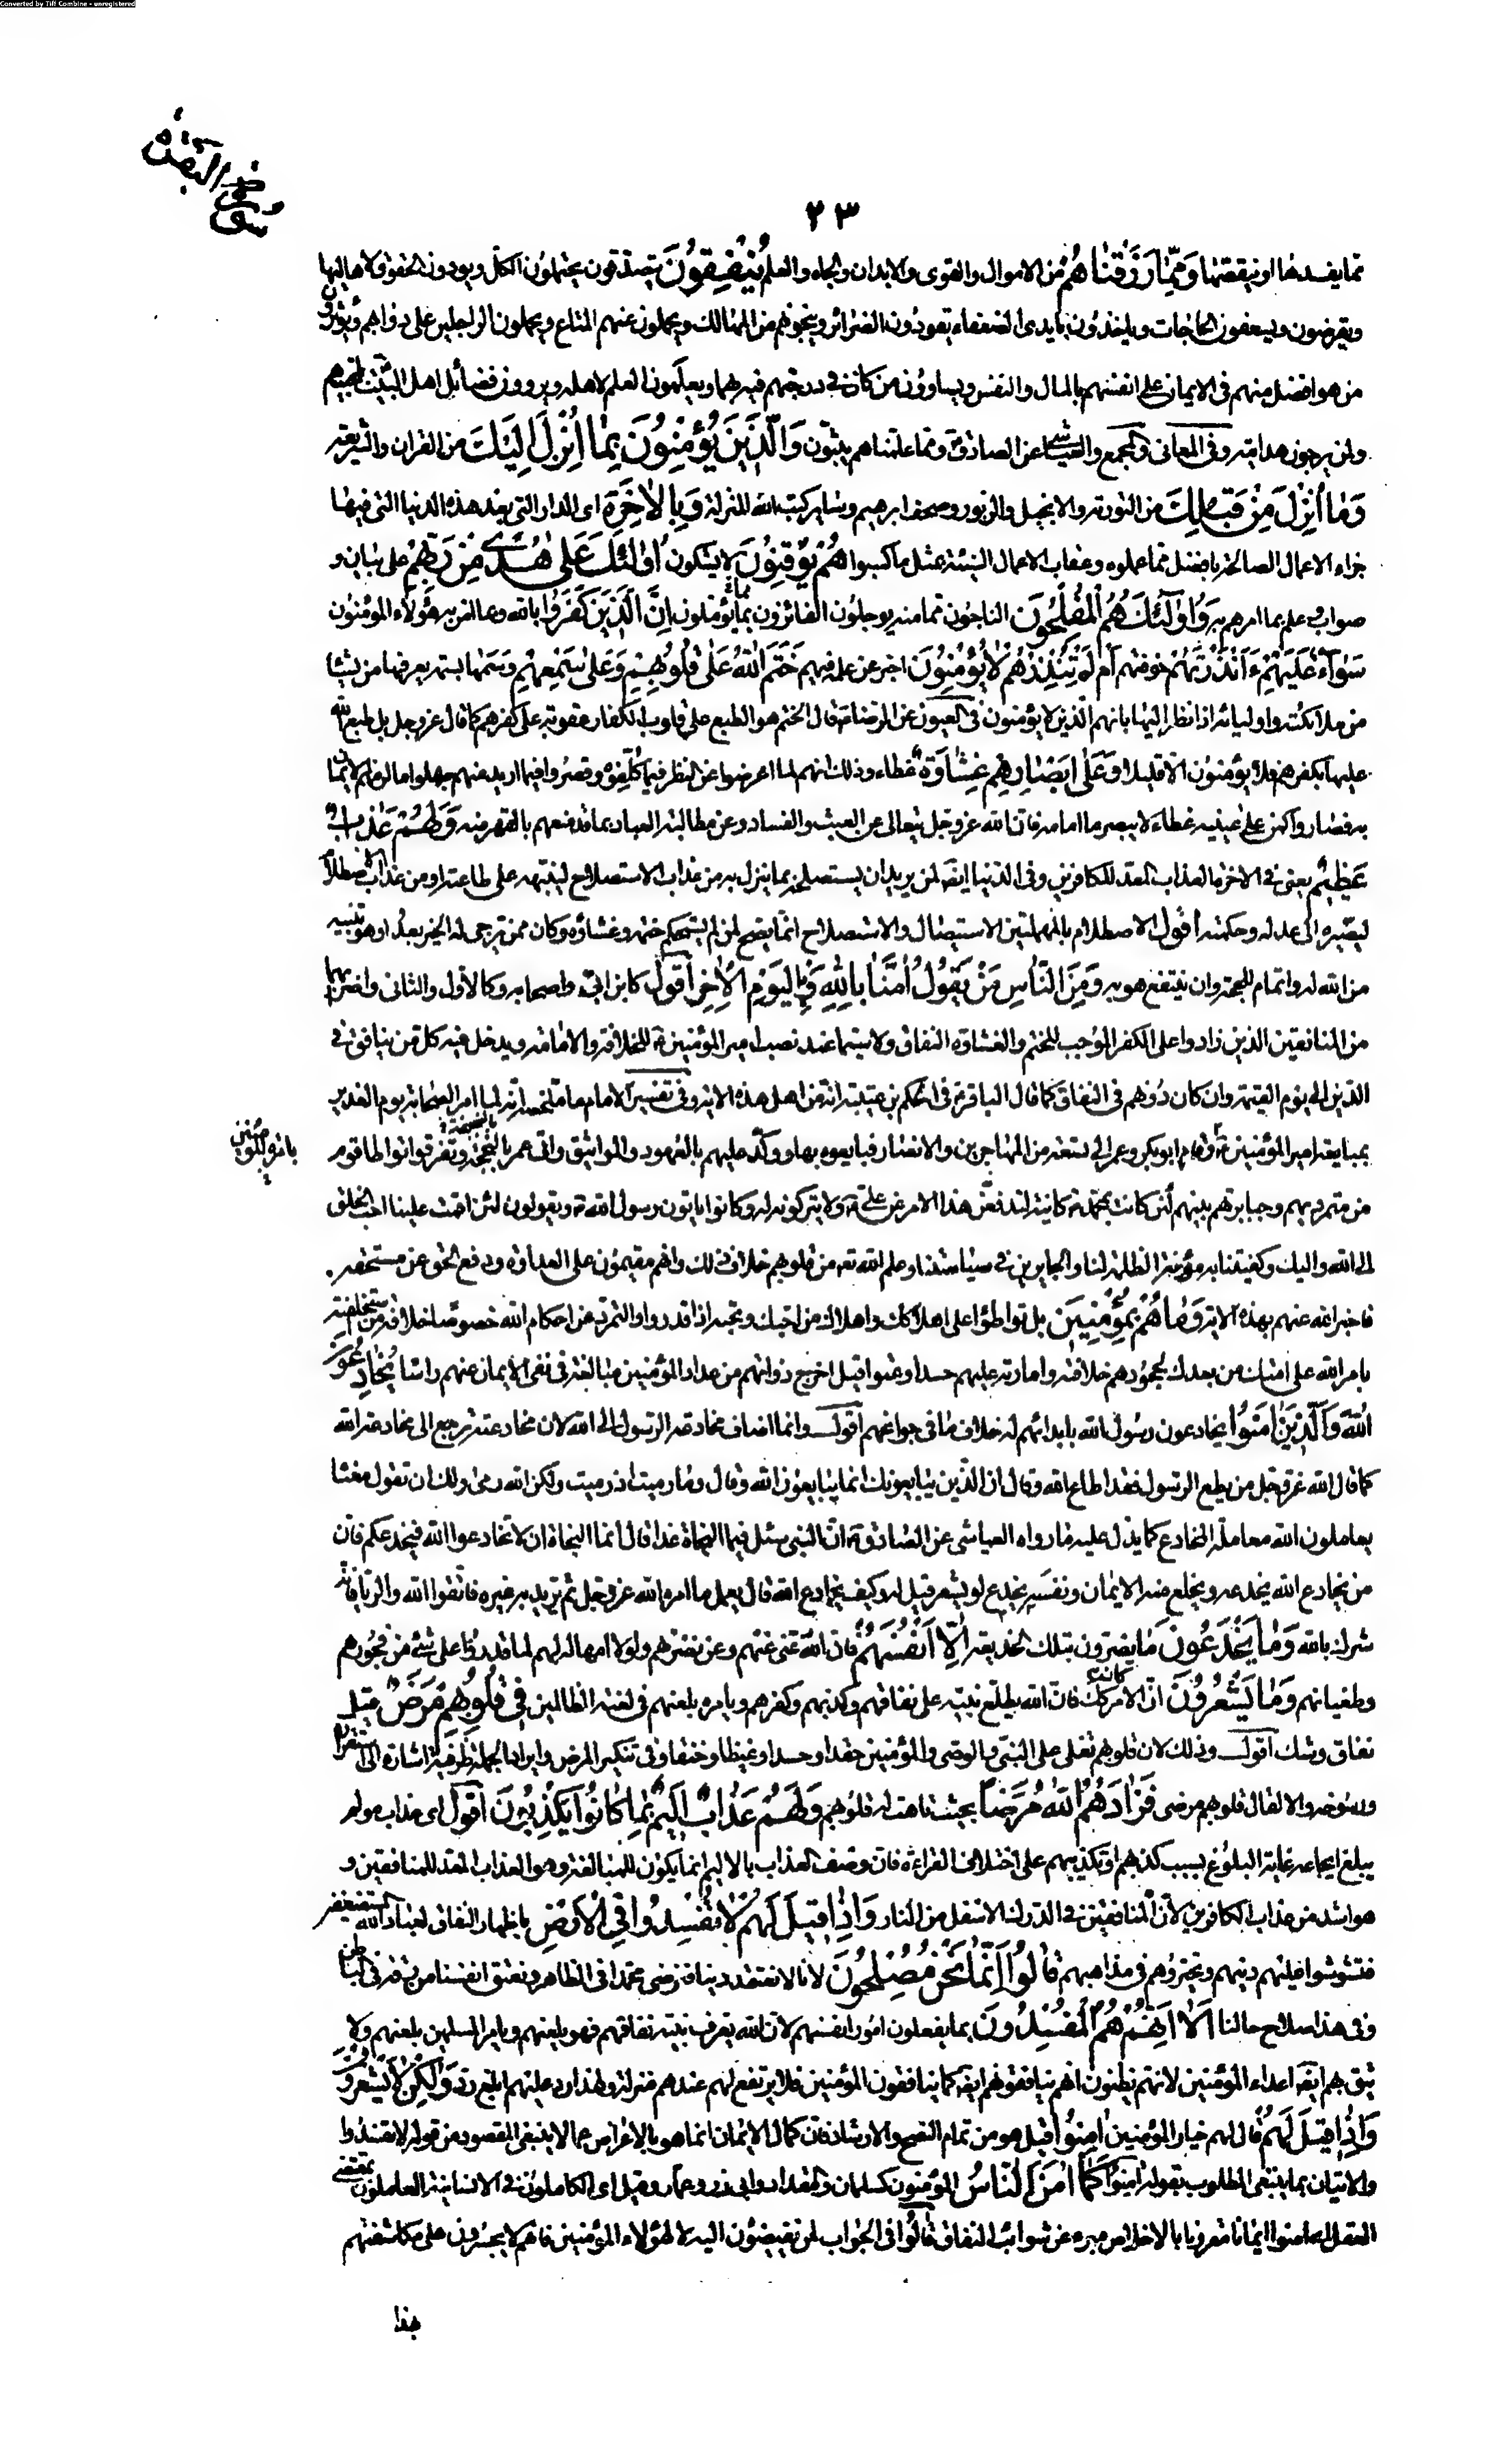 Converted by Tiff Combine - unregistered
سورة البقرة
٢٣
مما يفسدها او ينقصها وَمِمّا رَزَقْناهُمْ من الاموال والقوى والابدان والجاه والعلم يُنْفِقُونَ يتصدقون يحتملون الكل ويؤدون الحقوق لاهاليها
ويقرضون ويسعفون الحاجات وياخذون بايدى الضعفاء يقودون الضرائر وينجونهم من المهالك ويحملون عنهم المتاع ويحملون الراجلين على دوابهم ويؤثرون
من هو افضل منهم فى الايمان على انفسهم بالمال والنفس ويساوون من كان فى درجتهم فيهما ويعلمون العلم لاهله ويروون فضائل اهل البيت لمحبيهم
ولمن يرجون هدايته وفى المعانى والمجمع والعياشى عن الصادق ومما علمناهم يبثون وَالَّذِينَ يُؤْمِنُونَ بِما اُنْزِلَ اِلَيْكَ من القران والشريعة
وَما اُنْزِلَ مِنْ قَبْلِكَ من التورية والانجيل والزبور وصحف ابرهيم وساير كتب الله المنزلة وَبِالْاخِرَةِ اى الدار التى بعد هذه الدنيا التى فيها
جزاء الاعمال الصالحة بافضل مما عملوه وعقاب الاعمال السيئة بمثل ما كسبوا هُمْ يُوقِنُونَ لا يشكون اُولئِكَ عَلى هُدىً مِنْ رَبِّهِمْ على بيان و
صواب وعلم بما امرهم به وَاُولئِكَ هُمُ الْمُفْلِحُونَ الناجون مما منه يوجلون الفائزون بما يؤملون اِنَّ الَّذِينَ كَفَرُوا بالله وبما امن به هؤلاء المؤمنون
سَواءٌ عَلَيْهِمْ ءَاَنْذَرْتَهُمْ خوفتهم اَمْ لَمْ تُنْذِرْهُمْ لا يُؤْمِنُونَ اخبر عن علمه فيهم خَتَمَ اللهُ عَلى قُلُوبِهِمْ وَعَلى سَمْعِهِمْ وسمها بسمة يعرفها من يشا
من ملائكته واوليائه اذا نظر اليها بانهم الذين لا يؤمنون فى العيون عن الرضا قال الختم هو الطبع على قلوب الكفار عقوبة على كفرهم كما قال عز وجل بل طبع الله
عليها بكفرهم فلا يؤمنون الا قليلا وَعَلى اَبْصارِهِمْ غِشاوَةٌ غطاء وذلك انهم لما اعرضوا عن النظر فيما كلفوه وقصروا فيما اريد منهم جهلوا ما لزمهم الايمان
به فصاروا كمن على عينيه غطاء لا يبصر ما امامه فان الله عز وجل يتعالى عن العبث والفساد وعن مطالبة العباد بما قد منعهم بالقهر منه وَلَهُمْ عَذابٌ
عَظِيمٌ يعنى فى الاخرة العذاب المعد للكافرين وفى الدنيا ايضا لمن يريد ان يستصلحه بما ينزل به من عذاب الاستصلاح لينبهه على طاعته او من عذاب الاصطلام
ليصيره الى عدله وحكمته اقول الاصطلام بالمهملتين الاستيصال والاستصلاح انما يصح لمن لم يستحكم ختمه وغشاؤه وكان ممن يرجى له الخير بعد او هو تنبيه
من الله له واتمام للحجة وان ينتفع هو به وَمِنَ النّاسِ مَنْ يَقُولُ امَنّا بِاللهِ وَبِالْيَوْمِ الْاخِرِ اقول كابن ابى واصحابه وكالاول والثانى واضرابهما
من المنافقين الذين زادوا على الكفر الموجب للختم والغشاوة النفاق ولا سيما عند نصب امير المؤمنين للخلافة والامامة ويدخل فيه كل من ينافق فى
الدين الى يوم القيمة وان كان دونهم فى النفاق كما قال الباقر فى الحكم بن عتيبة انه من اهل هذه الاية وفى تفسير الامام ما ملخصه انه لما امر الصحابة يوم الغدير
بامرة المؤمنين
بمبايعة امير المؤمنين وقام ابو بكر وعمر الى تسعة من المهاجرين والانصار فبايعوه بها ووكد عليهم بالعهود والمواثيق واتى عمر بالبخبخة وتفرقوا تواطا قوم
من متمرديهم وجبابرتهم بينهم لئن كانت بمحمد كائنة لندفعن هذا الامر عن على ولا يتركونه له وكانوا ياتون رسول الله ويقولون لئن اقمت علينا احب الخلق
الى الله واليك وكفيتنا به مؤنة الظلمة لنا والجابرين فى سياستنا وعلم الله تعالى من قلوبهم خلاف ذلك وانهم مقيمون على العداوة ودفع الحق عن مستحقه
فاخبر الله عنهم بهذه الاية وَما هُمْ بِمُؤْمِنِينَ بل تواطؤا على اهلاكك واهلاك من احبك وتحبه اذا قدروا والتمرد عن احكام الله خصوصا خلافة من استخلفته
بامر الله على امتك من بعدك لجحودهم خلافته وامارته عليهم حسدا وعتوا قيل اخرج ذواتهم من عداد المؤمنين مبالغة فى نفى الايمان عنهم راسا يُخادِعُونَ
اللهَ وَالَّذِينَ امَنُوا يخادعون رسول الله بابدائهم له خلاف ما فى جوانحهم اقول وانما اضاف مخادعة الرسول الى الله لان مخادعته ترجع الى مخادعة الله
كما قال الله عز وجل من يطع الرسول فقد اطاع الله وقال ان الذين يبايعونك انما يبايعون الله وقال وما رميت اذ رميت ولكن الله رمى ولك ان تقول معنا
يعاملون الله معاملة المخادع كما يدل عليه ما رواه العياشى عن الصادق ان النبى سئل فيما النجاة غدا قال انما النجاة ان لا تخادعوا الله فيخدعكم فان
من يخادع الله يخدعه ويخلع منه الايمان ونفسه يخدع لو يشعر قيل له وكيف يخادع الله قال يعمل ما امره الله عز وجل ثم يريد به غيره فاتقوا الله والريا فانه
شرك بالله وَما يَخْدَعُونَ ما يضرون بتلك الخديعة اِلّا اَنْفُسَهُمْ فان الله غنى عنهم وعن نصرتهم ولولا امهاله لهم لما قدروا على شئ من فجورهم
وطغيانهم وَما يَشْعُرُونَ ان الامر كذلك فان الله يطلع نبيه على نفاقهم وكذبهم وكفرهم ويامره بلعنهم فى لعنة الظالمين فِى قُلُوبِهِمْ مَرَضٌ قيل
نفاق وشك اقول وذلك لان قلوبهم تغلى على النبى والوصى والمؤمنين حقدا وحسدا وغيظا وحنقا وفى تنكير المرض وايراد الجملة ظرفية اشارة الى استقراره
ورسوخه والا لقال قلوبهم مرضى فَزادَهُمُ اللهُ مَرَضاً بحيث تاهت له قلوبهم وَلَهُمْ عَذابٌ اَلِيمٌ بِما كانُوا يَكْذِبُونَ اقول اى عذاب مولم
يبلغ ايجاعه غاية البلوغ بسبب كذبهم او تكذيبهم على اختلاف القراءة فان وصف العذاب بالاليم انما يكون للمبالغة وهو العذاب المعد للمنافقين و
هو اشد من عذاب الكافرين لان المنافقين فى الدرك الاسفل من النار وَاِذا قِيلَ لَهُمْ لا تُفْسِدُوا فِى الْاَرْضِ باظهار النفاق لعباد الله المستضعفين
فتشوشوا عليهم دينهم وتحيروهم فى مذاهبهم قالُوا اِنَّما نَحْنُ مُصْلِحُونَ لانا لا نعتقد دينا فنرضى محمدا فى الظاهر ونعتق انفسنا من رقه فى الباطن
وفى هذا صلاح حالنا اَلا اِنَّهُمْ هُمُ الْمُفْسِدُونَ بما يفعلون امور انفسهم لان الله يعرف نبيه نفاقهم فهو يلعنهم ويامر المسلمين بلعنهم ولا
يثق بهم ايضا اعداء المؤمنين لانهم يظنون انهم ينافقونهم ايضا كما ينافقون المؤمنين فلا يرتفع لهم عندهم منزلة ولهذا رد عليهم ابلغ رد وَلكِنْ لا يَشْعُرُونَ
وَاِذا قِيلَ لَهُمْ قال لهم خيار المؤمنين امِنُوا قيل هو من تمام النصح والارشاد فان كمال الايمان انما هو بالاعراض عما لا ينبغى المقصود من قوله لا تفسدوا
والاتيان بما ينبغى المطلوب بقوله امنوا كَما امَنَ النّاسُ المؤمنون كسلمان والمقداد وابى ذر وعمار وقيل اى الكاملون فى الانسانية العاملون بمقتضى
العقل اى امنوا ايمانا مقرونا بالاخلاص مبرء عن شوائب النفاق قالُوا فى الجواب لمن يفيضون اليه لا لهؤلاء المؤمنين فانهم لا يجسرون على مكاشفتهم
بهذا